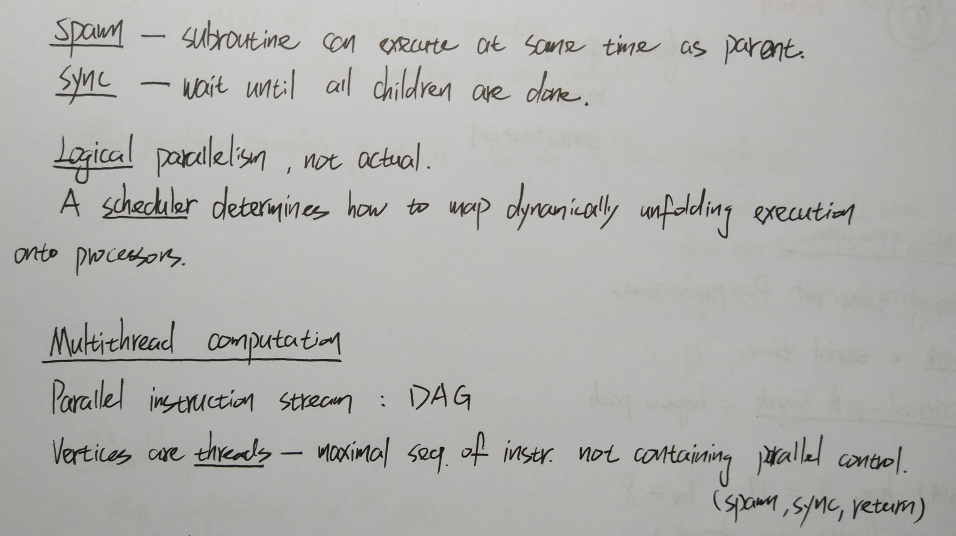 Spawn — subroutine can execute at same time as parent.
Sync — wait until all children are done.
Logical parallelism, not actual.
A scheduler determines how to map dynamically unfolding execution
onto processors.
Multithread computation
Parallel instruction stream : DAG
Vertices are threads — maximal seq. of instr. not containing parallel control.
(spawn, sync, return)